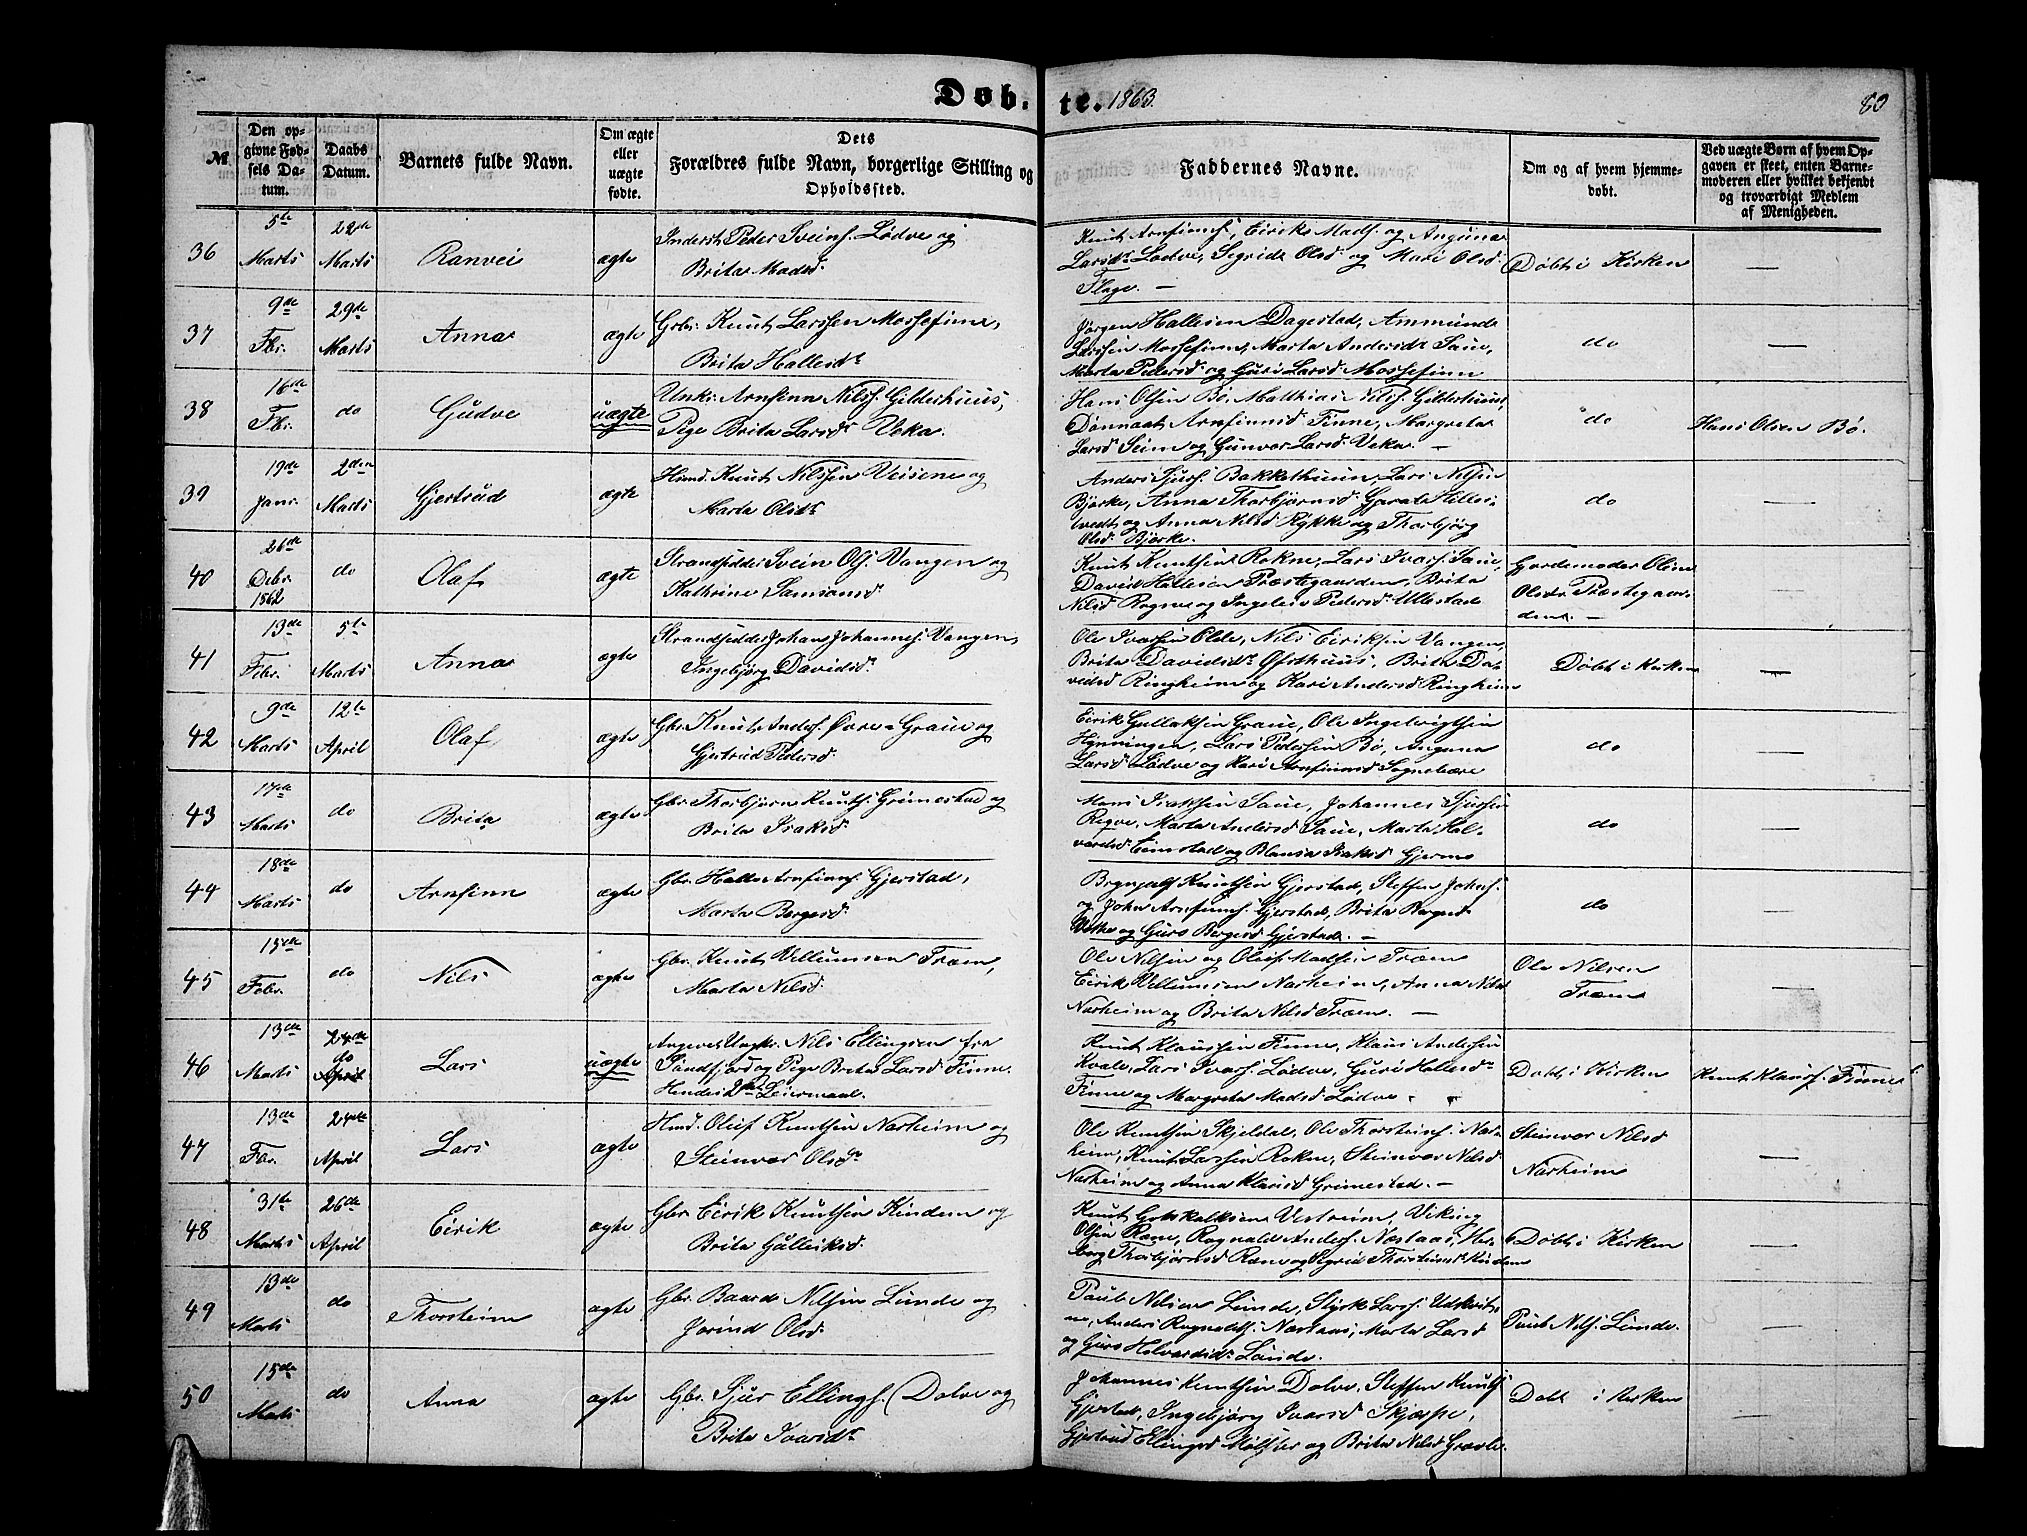 Døb-te. 1863.
80
№
Den op-
givne Fød-
sels Da-
tum.
Daabs
Datum.
Barnets fulde Navn.
Om ægte
eller
uægte
fødte.
Dets
Forældres fulde Navn, borgerlige Stilling og
Opholdssted.
Faddernes Navne.
Om og af hvem hjemme-
døbt.
Ved uægte Børn af hvem Op-
gaven er skeet, enten Barne-
moderen eller hvilket bekjendt
og troværdigt Medlem
af Menigheden.
36
5te
Marts
22de
Marts
Ranvei
ægte
Inderst Peder Sveins. Lødve og
Brita Madsd.
Knut Arnfinns., Eirik Mads. og Anguna
Larsdr Lødve, Sigrid Olsd og Mari Olsd
Flage. —
Døbt i Kirken
—
37
9de
Fbr.
29de
Marts
Anna
ægte
Grbr. Knut Larssen Mossefinn,
Brita Hallesdr
Jørgen Hallesen Dagestad, Ammund
Larssen Mossefinn, Marta Andersdr Saue,
Marta Pedersd og Guri Larsd Mossefinn
do
—
38
16de
Fbr.
do
Gudve
uægte
Unks. Arnfinn Nils. Gilderhuus,
Pige Brita Larsdr Veka.
Hans Olsen Bø, Matthias Nilss Gilderhuus,
Arnfinnsd Finne, Margreta
Larsd Seim og Gunvor Larsd Veka. —
do
Hans Olsen Bø.
39
19de
Janr.
2den
Marts
Gjertrud
ægte
Husmd. Knut Nilssen Veisene og
Marta Olsdr
Anders Sjurs. Bakkethuun, Lars Nilsen
Bjørke, Anna Thorbjørnsd
og Anna Nilsd Rykke og Thorbjørg
Olsd Bjørke.
do
—
40
26de
Debr.
1862
do
Olaf
ægte
Strandsidder Svein Ols. Vangen og
Kathrine Samsonsd
Knut Knutsen Rokne, Lars Ivars. Saue,
David Hallesen Præstegaarden, Brita
Nilsd Rogne og Ingeleiv Pedersd. Ullestad
Gjordemoder Oline
Olsdr Præstegaar-
den. —
41
13de
Febr.
5te
Marts
Anna
ægte
Strandsidder Johans Johannes. Vangen,
Ingebjørg Davidsdr
Ole Ivarsen Olde, Nils Eiriksen Vangen,
Brita Davidsdr Østhuus, Brita Da-
vidsd Ringheim og Kari Andersd Ringheim
Døbt i Kirken
—
42
9de
Marts
12te
April
Olaf
ægte
Gbr. Knut Anders. Øvre-Graue og
Gjertrud Pedersd.
Eirik Gullaksen Graue, Ole Ingelvigtsen
Hønningen, Lars Pedersen Bø, Anguna
Larsd Lødve og Kari Arnfinnsd Sagnebere
do
—
43
17de
Marts
do
Brita
ægte
Gbr. Thorbjørn Knuts. Grimestad og
Brita Isaksd.
Mons Isaksen Saue, Johannes Sjursen
Rogve, Marta Andersd Saue, Marta Hal-
vardsd. Eimstad og Blansa Isaksd Gjerme
do
—
44
18de
Marts
do
Arnfinn
ægte
Gbr. Halle Arnfinns. Gjerstad,
Marta Børgesd.
Brynjulf Knutsen Gjerstad, Steffen Johns.
og John Arnfinns. Gjerstad, Brita Børgesd.
og Guro Børgesd Gjerstad. —
do
—
45
15de
Febr.
do
Nils
ægte
Gbr. Knut Villumsen Træen,
Marta Nilsd.
Ole Nilsen og Oluf Madsen Træen
Eirik Villumsen Narheim, Anna Nilsd
Narheim og Brita Nilsd Træen. —
Ole Nilsen
Træen
—
46
13de
Marts
24de
do
April
Lars
uægte
Angevet Ungk. Nils Ellingsen fra
Søndfjord og Pige Brita Larsd. Finne.
Hendes 2det Leiermaal.
Knut Klaussen Finne, Klaus Andersen
Kvale, Lars Ivars. Lødve, Guri Hallesdr
Finne og Margreta Madsd Lødve.
Døbt i Kirken
Knut Klauss. Finne
47
13de
Fbr.
24de
April
Lars
ægte
Hmd. Oluf Knutsen Narheim og
Steinvor Olsdr
Ole Knutsen Skjeldal, Ole Thorsteins. Nar-
heim, Knut Larssen Rokne, Steinvor Nilsd
Narheim og Anna Klausd Grimestad. —
Steinvor Nilsd
Narheim
—
48
31te
Marts
26de
April
Eirik
ægte
Gbr. Eirik Knutsen Kindem og
Brita Gulleiksd.
Knut Gotskalksen Vestreim, Viking
Olsen Røne, Rognald Anders. Næstaas, Her-
borg Thorbjørnsd Røne og Sigrid Thorsteinsdr Kindem
Døbt i Kirken
—
49
13de
Marts
do
Thorstein
ægte
Gbr. Baard Nilsen Lunde og
Jorind Olsd.
Paul Nilsen Lunde, Styrk Larss.
Anders Rognalds. Næstaas, Marta Larsd
og Guro Halvardsdr Lunde.
Paul Nils. Lunde.
—
50
15de
Marts
do
Anna
ægte
Gbr. Sjur Ellings. (Dolve og
Brita Ivarsdr
Johannes Knutsen Dolve, Steffen Knuts.
Gjerstad, Ingebjørg Ivarsd Skjerpe,
Gjertrud Ellingsd Mølster og Brita Nilsd
Døbt i Kirken
—